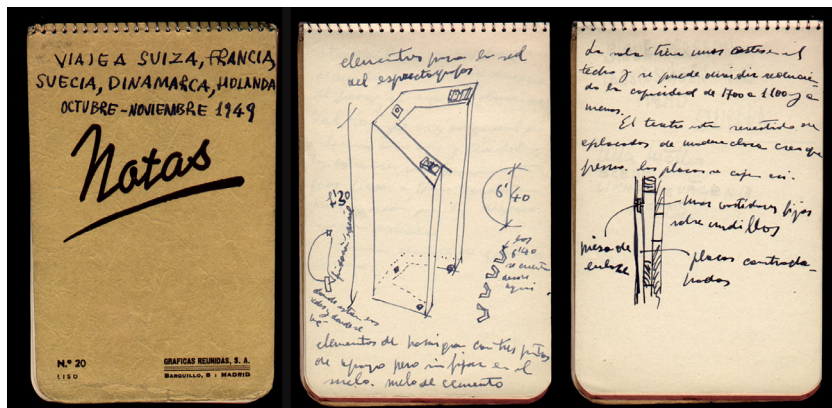 VIAJE A SUIZA, FRANCIA,
SUECIA, DINAMARCA, HOLANDA
OCTUBRE-NOVIEMBRE 1949
Notas
N.º 20
LISO
GRAFICAS REUNIDAS, S. A.
BARQUILLO, 8 : MADRID
elementos para la red
del espectógrafo
6'40
los
6'40
se cuentan
desde
aquí
elementos de hormigón con tres puntos
de apoyo pero sin fijar en el
suelo. suelo de cemento
La sala tiene unos costes en el
techo y se puede dividir reducien-
do la capacidad de 1700 a 1100 y a
menos.
El teatro está revestido de
aplacados de madera clara creo que
fresno. las placas se cogen así.
unos bastidores fijos
sobre nudillos
pieza de
enlace
placas contracha-
padas